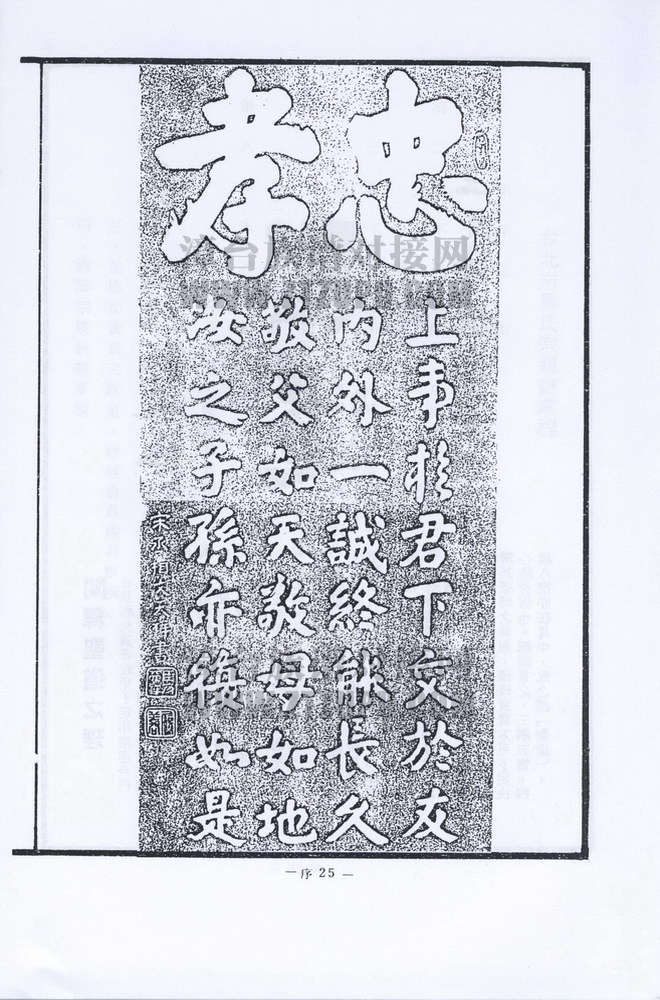 忠孝
上事於君下交於友
内外一誠終能長久
敬父如天敬母如地
汝之子孫亦復如是
— 序 25 —